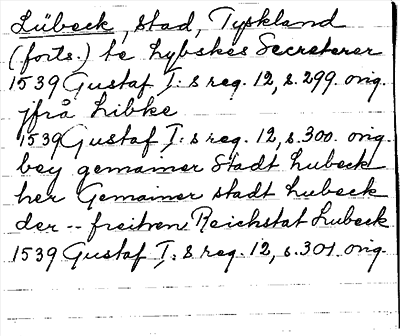 Lübeck, stad, Tyskland
(forts.) te Lybskes Secreterer
1539 Gustaf I:s reg. 12, s. 299. orig.
jfrå Libke
1539 Gustaf I:s reg. 12, s. 300. orig.
bey gemainer Stadt Lubeck
her Gemainer stadt Lubeck
der -- freitven Reichstat Lubeck
1539 Gustaf I:s reg. 12, s. 301. orig.